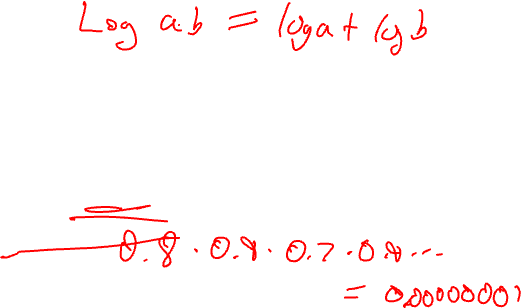 Log a.b = loga + log b
0.8 · 0.9 · 0.7 · 0.8 ...
= 0.00000001